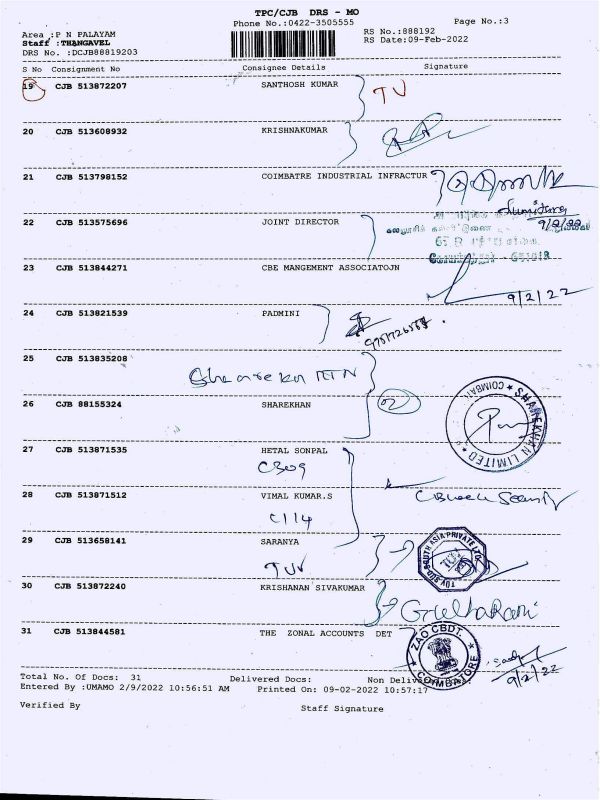 TPC/CJB DRS - MO
Phone No.:0422-3505555 Page No.:3
Area :P N PALAYAM RS No.:888192
Staff :THANGAVEL RS Date:09-Feb-2022
DRS No. :DCJB88819203
S No Consignment No Consignee Details Signature
19 CJB 513872207 SANTHOSH KUMAR
TV
20 CJB 513608932 KRISHNAKUMAR
21 CJB 513798152 COIMBATRE INDUSTRIAL INFRACTUR
9/2/22
22 CJB 513575696 JOINT DIRECTOR
23 CJB 513844271 CBE MANGEMENT ASSOCIATOJN
9/2/22
24 CJB 513821539 PADMINI
25 CJB 513835208
26 CJB 88155324 SHAREKHAN
SHAREKHAN LIMITED
27 CJB 513871535 HETAL SONPAL
CB09
28 CJB 513871512 VIMAL KUMAR.S
C114
29 CJB 513658141 SARANYA
TUV
TUV SUD SOUTH ASIA PRIVATE LTD
30 CJB 513872240 KRISHANAN SIVAKUMAR
31 CJB 513844581 THE ZONAL ACCOUNTS DET
ZAO CBDT.
COIMBATORE
9/2/22
Total No. Of Docs: 31 Delivered Docs: Non Delivered
Entered By :UMAMO 2/9/2022 10:56:51 AM Printed On: 09-02-2022 10:57:17
Verified By Staff Signature